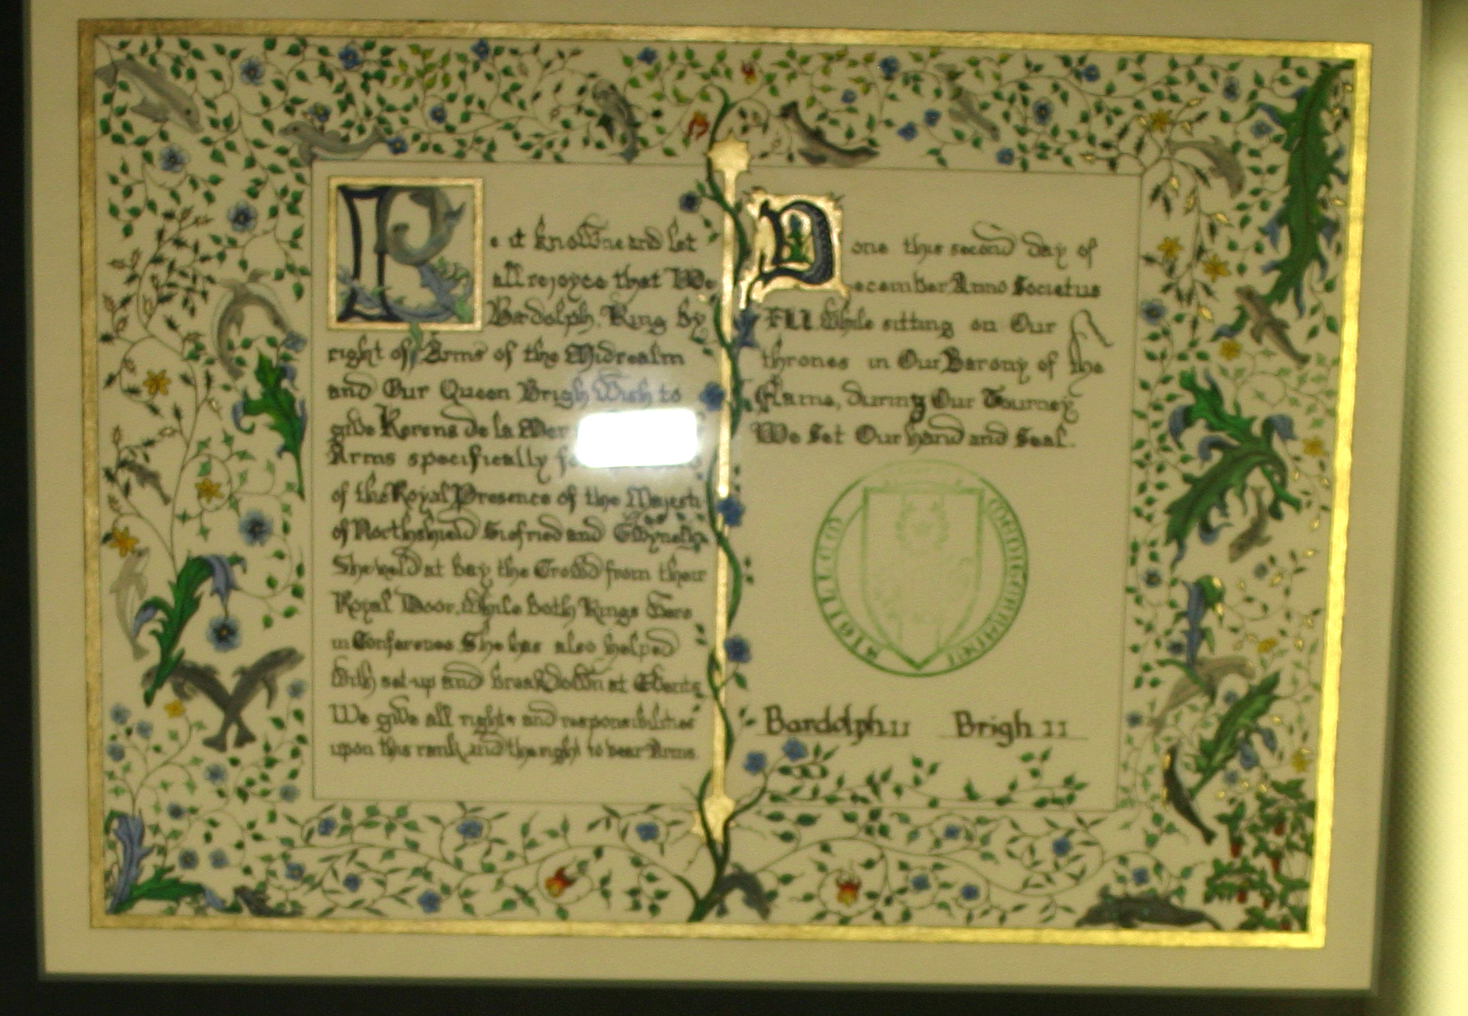 Be it knowne and let
all rejoyce that We
Bardolph, King by
right of Arms of the Midrealm
and Our Queen Brigh Wish to
give Kerens de la Mer
Arms specifically
of the Royal Presence of the
of Northshield Siofried and
She held at bay the Crowd from their
Royal Door, While both Kings Were
in Conference. She has also helped
With set-up and breakdown at Events
We give all rights and responsibilities
upon this rank and the right to bear Arms.
Done this second day of
December Anno Societus
While sitting on Our
thrones in Our Barony of the
Flame, during Our Tourney
We Set Our hand and Seal.
SIGILLUM
Bardolph II Brigh II